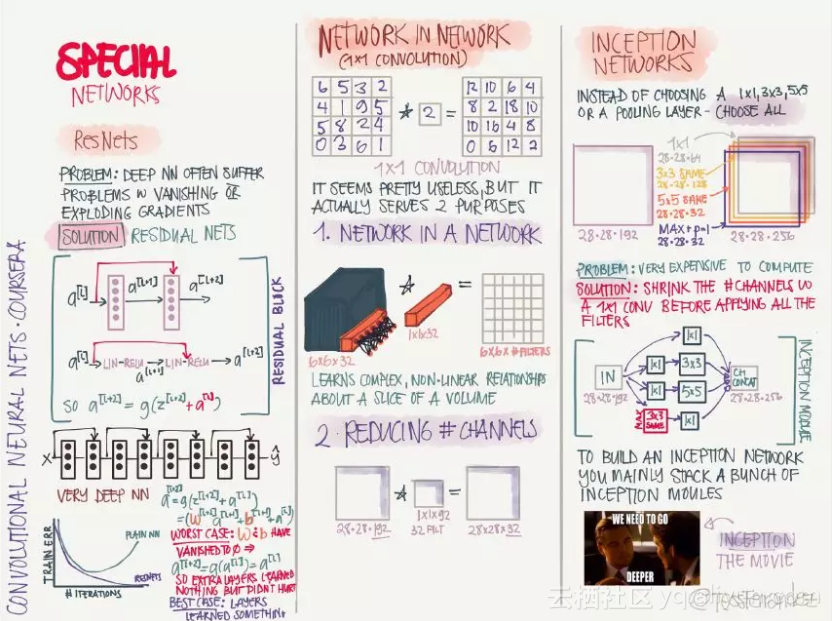 CONVOLUTIONAL NEURAL NETS · COURSERA
SPECIAL
NETWORKS
ResNets
PROBLEM: DEEP NN OFTEN SUFFER
PROBLEMS W VANISHING OR
EXPLODING GRADIENTS
SOLUTION RESIDUAL NETS
a[l] a[l+1] a[l+2]
a[l] LIN-RELU LIN-RELU a[l+2]
a[l+1]
SO a[l+2] = g(z[l+2] + a[l])
RESIDUAL BLOCK
X ŷ
VERY DEEP NN
TRAIN ERR
PLAIN NN
RESNETS
# ITERATIONS
a[l+2] = g(z[l+2] + a[l])
WORST CASE: W & b HAVE
VANISHED TO 0 ⇒
a[l+2] = g(a[l]) = a[l]
SO EXTRA LAYERS LEARNED
NOTHING BUT DIDN'T HURT
BEST CASE: LAYERS
LEARNED SOMETHING
NETWORK IN NETWORK
(1×1 CONVOLUTION)
6 5 3 2 12 10 6 4
4 1 9 5 * 2 = 8 2 18 10
5 8 2 4 10 16 4 8
0 3 6 1 0 6 12 2
1×1 CONVOLUTION
IT SEEMS PRETTY USELESS, BUT IT
ACTUALLY SERVES 2 PURPOSES
1. NETWORK IN A NETWORK
* =
6×6×32 1×1×32 6×6×#FILTERS
LEARNS COMPLEX, NON-LINEAR RELATIONSHIPS
ABOUT A SLICE OF A VOLUME
2. REDUCING # CHANNELS
* =
28·28·192 1×1×92 28×28×32
32 FILT
INCEPTION
NETWORKS
INSTEAD OF CHOOSING A 1×1, 3×3, 5×5
OR A POOLING LAYER - CHOOSE ALL
1×1
28·28·64
3×3 SAME
28·28·128
5×5 SAME
28·28·32
MAX+p=1
28·28·32
28·28·192 28·28·256
PROBLEM: VERY EXPENSIVE TO COMPUTE
SOLUTION: SHRINK THE #CHANNELS W
A 1×1 CONV BEFORE APPLYING ALL THE
FILTERS
1×1
IN 1×1 3×3 CH
1×1 5×5 CONCAT
3×3 SAME 1×1
28·28·192 28·28·256
INCEPTION MODULE
TO BUILD AN INCEPTION NETWORK
YOU MAINLY STACK A BUNCH OF
INCEPTION MOULES
WE NEED TO GO
DEEPER
INCEPTION
THE MOVIE
云栖社区